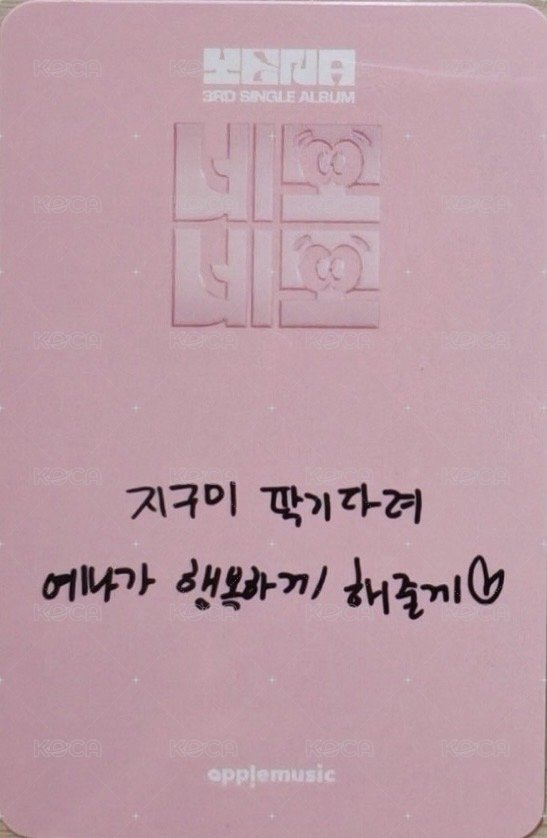 YENA
3RD SINGLE ALBUM
네모
네모
지구미 딱기다려
예나가 행복하게 해줄게♡
applemusic
KOCA